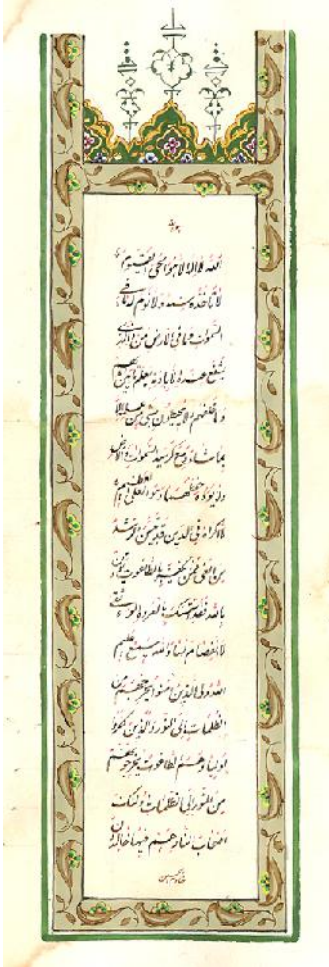 الله لا اله الا هو الحی القیوم
لا تاخذه سنة و لا نوم له ما فی
السموات و ما فی الارض من ذا الذی
یشفع عنده الا باذنه یعلم ما بین ایدیهم
و ما خلفهم و لا یحیطون بشیء من علمه الا
بما شاء وسع کرسیه السموات و الارض
و لا یؤده حفظهما و هو العلی العظیم
لا اکراه فی الدین قد تبین الرشد
من الغی فمن یکفر بالطاغوت و یؤمن
بالله فقد استمسک بالعروة الوثقی
لا انفصام لها و الله سمیع علیم
الله ولی الذین امنوا یخرجهم من
الظلمات الی النور و الذین کفروا
اولیاؤهم الطاغوت یخرجونهم
من النور الی الظلمات اولئک
اصحاب النار هم فیها خالدون